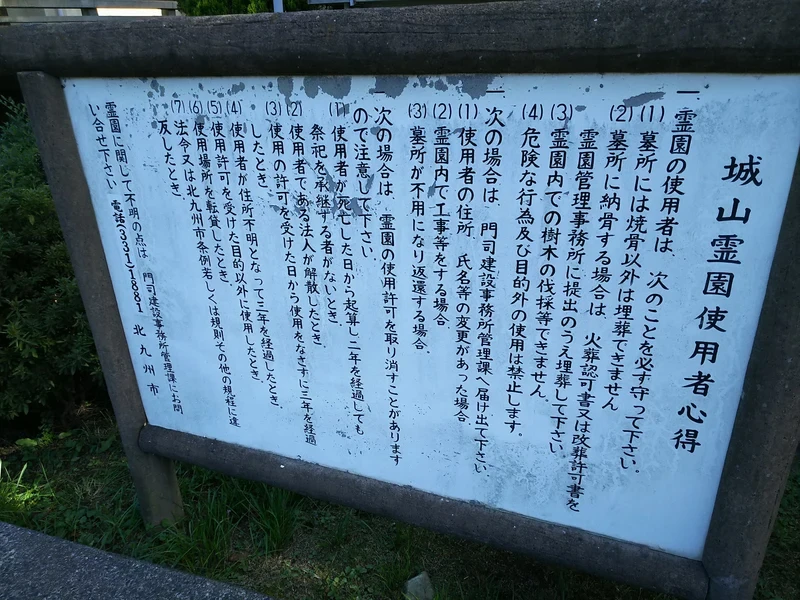 城山霊園使用者心得
一 霊園の使用者は、次のことを必ず守って下さい。
(1) 墓所には焼骨以外は埋葬できません
(2) 墓所に納骨する場合は、火葬認可書又は改葬許可書を
霊園管理事務所に提出のうえ埋葬して下さい
(3) 霊園内での樹木の伐採等できません
(4) 危険な行為及び目的外の使用は禁止します。
一 次の場合は、門司建設事務所管理課へ届け出て下さい
(1) 使用者の住所、氏名等の変更があった場合、
(2) 霊園内で工事等をする場合、
(3) 墓所が不用になり返還する場合、
一 次の場合は、霊園の使用許可を取り消すことがあります
ので注意して下さい、
(1) 使用者が死亡した日から起算し二年を経過しても
祭祀を承継する者がないとき、
(2) 使用者である法人が解散したとき、
(3) 使用の許可を受けた日から使用をなさずに三年を経過
したとき、
(4) 使用者が住所不明となって三年を経過したとき、
(5) 使用許可を受けた目的以外に使用したとき、
(6) 使用場所を転貸したとき、
(7) 法令又は北九州市条例若しくは規則その他の規程に違
反したとき、
霊園に関して不明の点は、門司建設事務所管理課にお問
い合せ下さい 電話(331)1881 北九州市